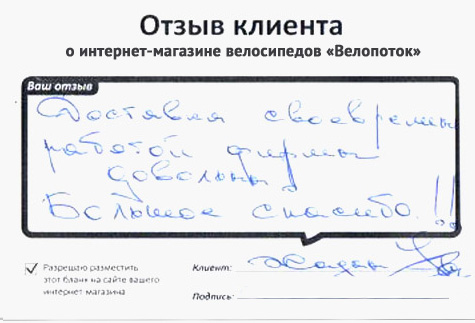 Отзыв клиента
о интернет-магазине велосипедов «Велопоток»
Ваш отзыв
Доставка своеврем
работой фирмы
довольны
Большое спасибо!!
Разрешаю разместить
этот бланк на сайте вашего
интернет магазина
Клиент:
Подпись: